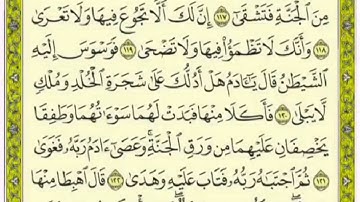 مِنَ الْجَنَّةِ فَتَشْقَىٰ ﴿١١٧﴾ إِنَّ لَكَ أَلَّا تَجُوعَ فِيهَا وَلَا تَعْرَىٰ
﴿١١٨﴾ وَأَنَّكَ لَا تَظْمَؤُا۟ فِيهَا وَلَا تَضْحَىٰ ﴿١١٩﴾ فَوَسْوَسَ إِلَيْهِ
الشَّيْطَٰنُ قَالَ يَٰٓـَٔادَمُ هَلْ أَدُلُّكَ عَلَىٰ شَجَرَةِ الْخُلْدِ وَمُلْكٍ
لَّا يَبْلَىٰ ﴿١٢٠﴾ فَأَكَلَا مِنْهَا فَبَدَتْ لَهُمَا سَوْءَٰتُهُمَا وَطَفِقَا
يَخْصِفَانِ عَلَيْهِمَا مِن وَرَقِ الْجَنَّةِ ۚ وَعَصَىٰٓ ءَادَمُ رَبَّهُۥ فَغَوَىٰ
﴿١٢١﴾ ثُمَّ اجْتَبَٰهُ رَبُّهُۥ فَتَابَ عَلَيْهِ وَهَدَىٰ ﴿١٢٢﴾ قَالَ اهْبِطَا مِنْهَا